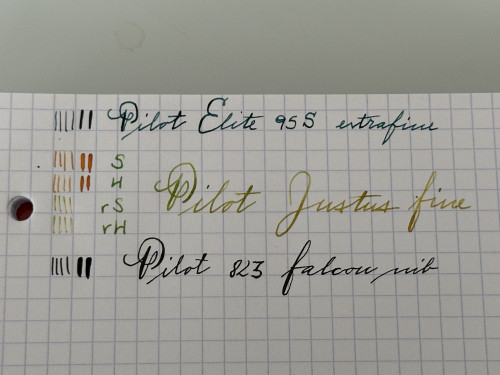 Pilot Elite 95S extrafine
S
H
Pilot Justus fine
rS
rH
Pilot 823 falcon nib